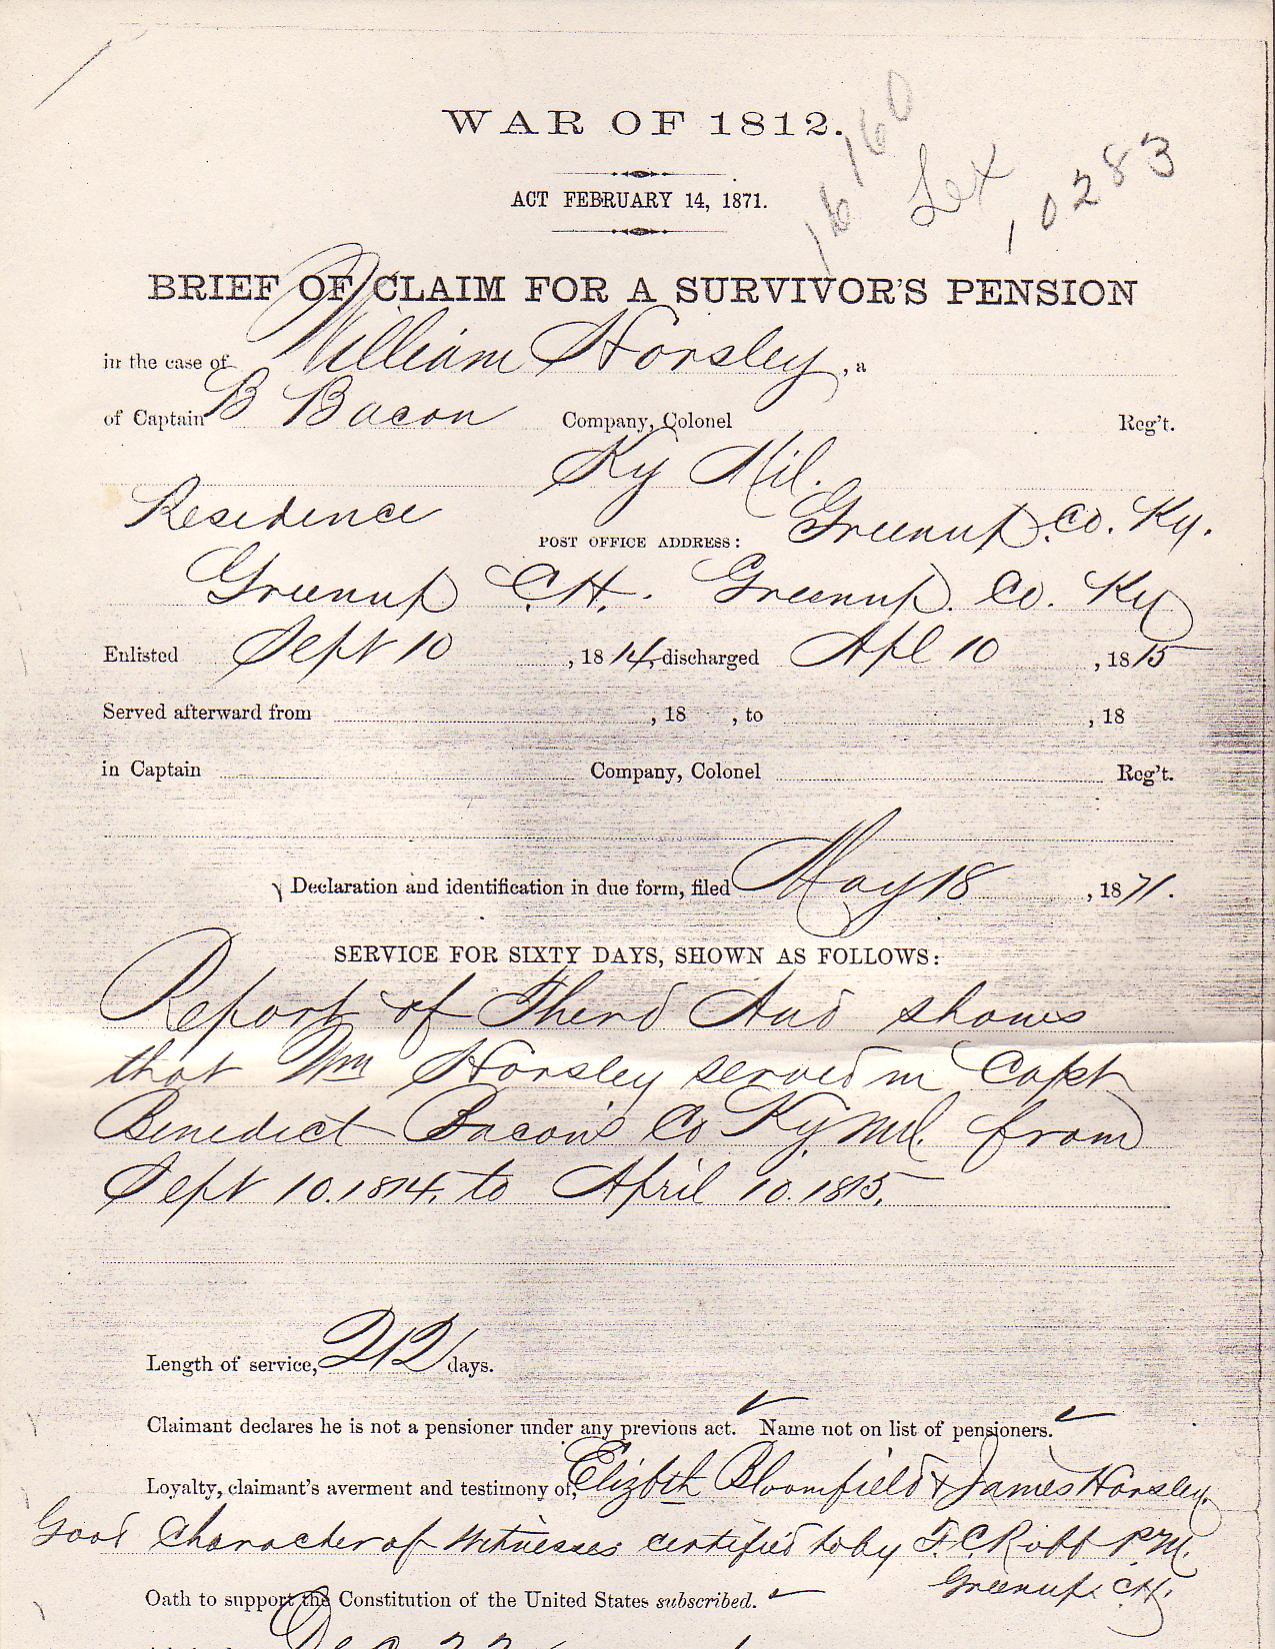 WAR OF 1812.
16160
Lex
10283
ACT FEBRUARY 14, 1871.
BRIEF OF CLAIM FOR A SURVIVOR'S PENSION
in the case of William Horsley, a
of Captain B Bacon Company, Colonel Reg't.
Ky Mil.
Residence Greenup. Co. Ky.
POST OFFICE ADDRESS:
Greenup C.H. Greenup. Co. Ky
Enlisted Sept 10, 1814, discharged Apl 10, 1815
Served afterward from , 18 , to , 18
in Captain Company, Colonel Reg't.
Declaration and identification in due form, filed May 18, 1871.
SERVICE FOR SIXTY DAYS, SHOWN AS FOLLOWS:
Report of Therd Aud shows
that Wm Horsley served in Capt
Benedict Bacon's Co Ky. Mil. from
Sept 10. 1814. to April 10. 1815.
Length of service, 212 days.
Claimant declares he is not a pensioner under any previous act. ✓ Name not on list of pensioners. ✓
Loyalty, claimant's averment and testimony of, Elizbth Bloomfield & James Horsley.
Good Character of Witnesses certified to by F. C. Robb P.M.
Greenup. C.H.
Oath to support the Constitution of the United States subscribed. ✓